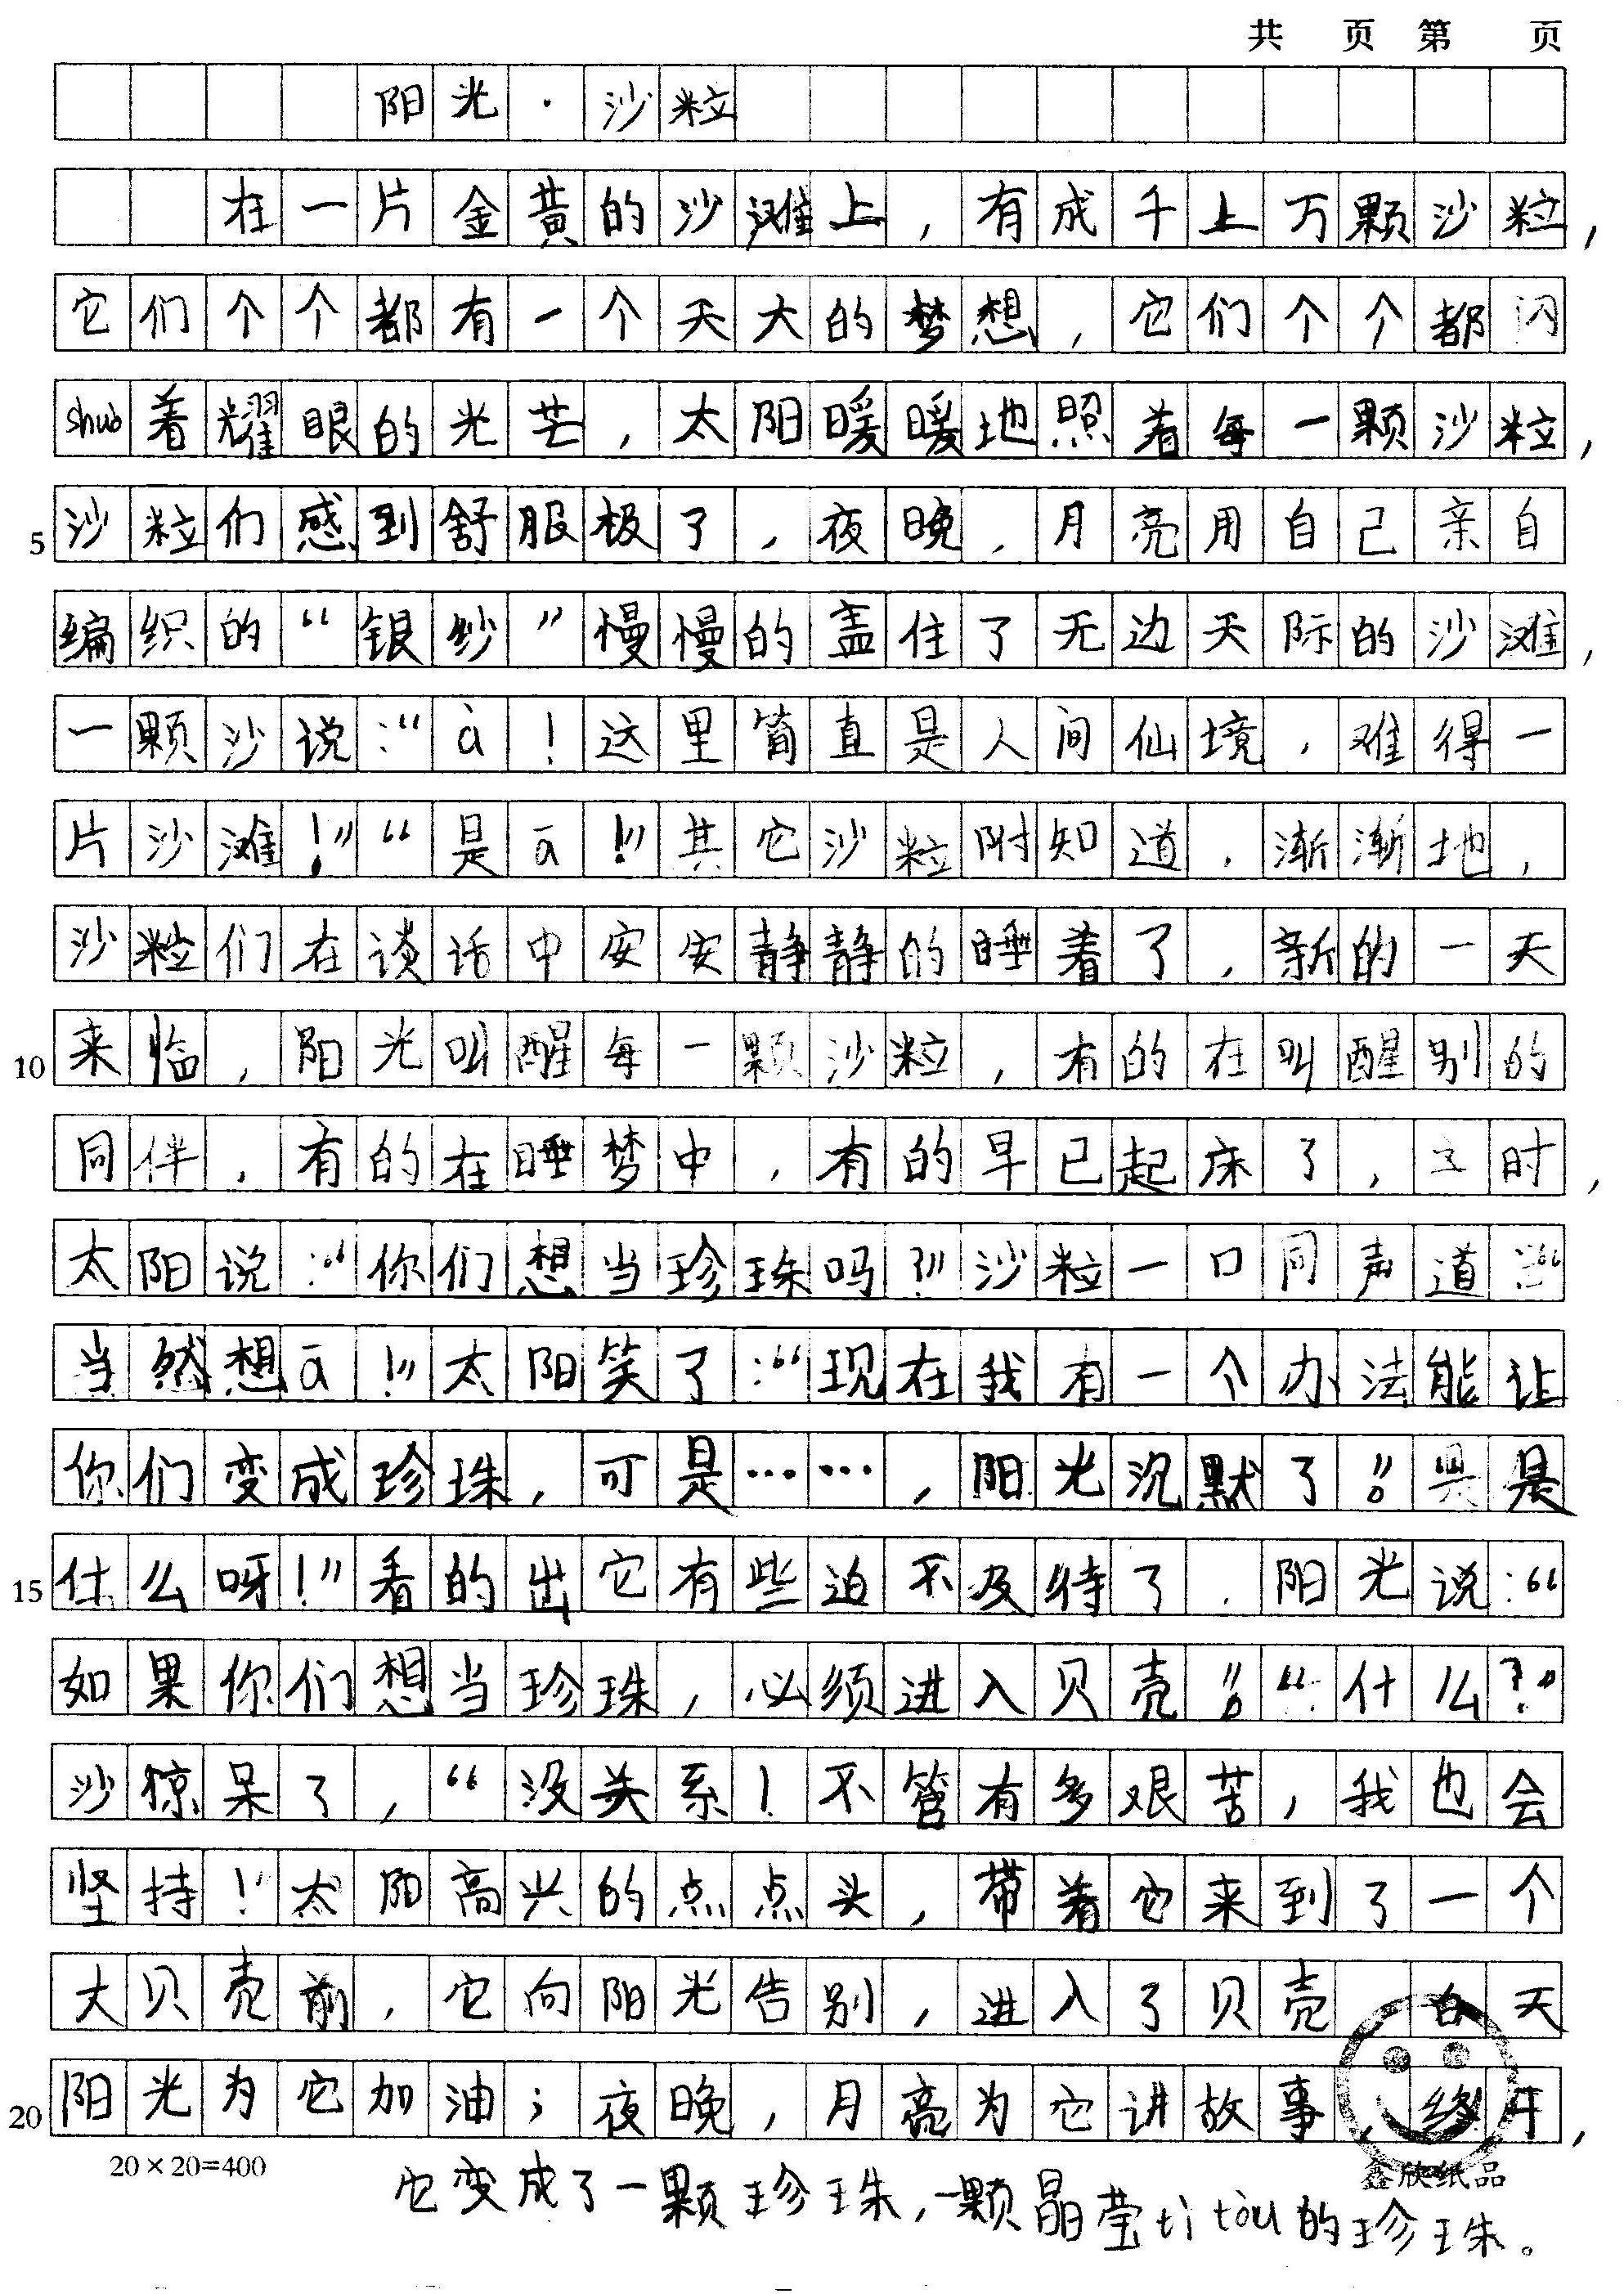 共 页 第 页
阳光·沙粒
在一片金黄的沙滩上，有成千上万颗沙粒，
它们个个都有一个天大的梦想，它们个个都闪
shuò着耀眼的光芒，太阳暖暖地照着每一颗沙粒，
5 沙粒们感到舒服极了，夜晚，月亮用自己亲自
编织的“银纱”慢慢的盖住了无边天际的沙滩，
一颗沙说：“à！这里简直是人间仙境，难得一
片沙滩！”“是ā！”其它沙粒附知道，渐渐地，
沙粒们在谈话中安安静静的睡着了，新的一天
10 来临，阳光叫醒每一颗沙粒，有的在叫醒别的
同伴，有的在睡梦中，有的早已起床了，这时，
太阳说：“你们想当珍珠吗？”沙粒一口同声道：“
当然想ā！”太阳笑了：“现在我有一个办法能让
你们变成珍珠，可是……，阳光沉默了。”是
15 什么呀！”看的出它有些迫不及待了．阳光说：“
如果你们想当珍珠，必须进入贝壳。”“什么？”
沙惊呆了，“没关系！不管有多艰苦，我也会
坚持！”太阳高兴的点点头，带着它来到了一个
大贝壳前，它向阳光告别，进入了贝壳 白天
20 阳光为它加油；夜晚，月亮为它讲故事，终于，
20×20=400
鑫欣纸品
它变成了一颗珍珠，一颗晶莹tì tòu的珍珠。